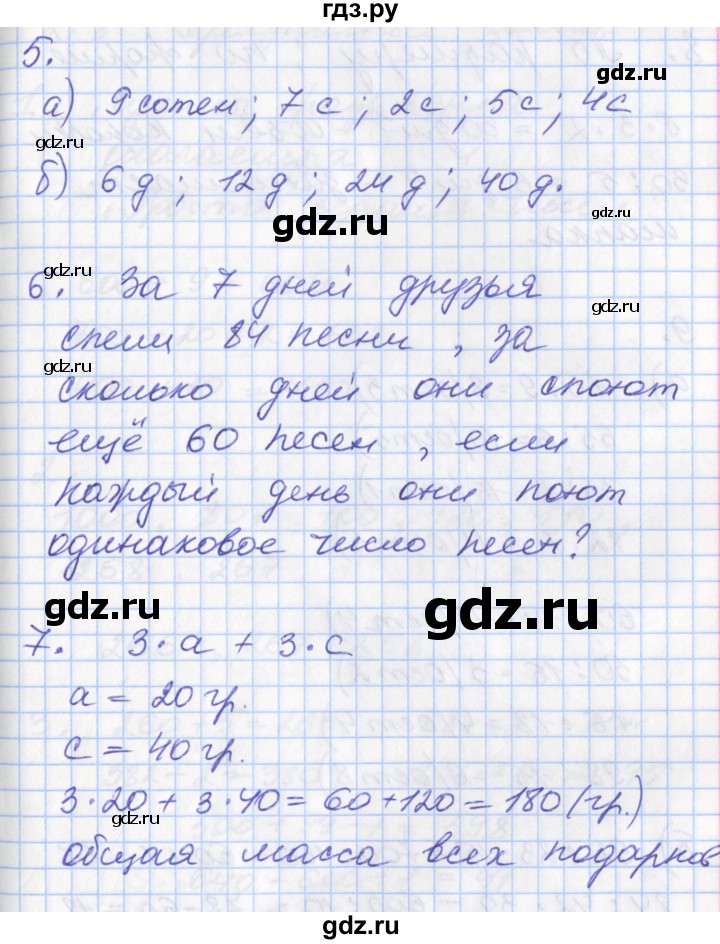 гдз.ру
5.
а) 9 сотен; 7 с; 2 с; 5 с; 4 с
gdz.ru
б) 6 д; 12 д; 24 д; 40 д.
gdz.ru
gdz.ru
gdz.ru
6. За 7 дней друзья
gdz.ru
спели 84 песни, за
gdz.ru
сколько дней они споют
ещё 60 песен, если
каждый день они поют
одинаковое число песен?
gdz.ru
gdz.ru
7. 3·а + 3·с
а = 20 гр.
с = 40 гр.
3·20 + 3·40 = 60 + 120 = 180 (гр.)
gdz.ru
общая масса всех подарков
gdz.ru